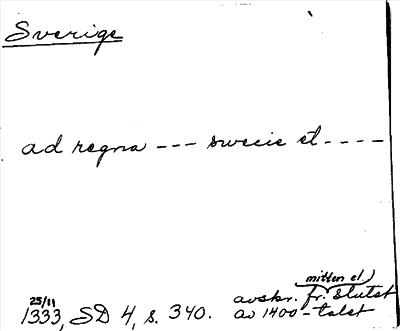 Sverige
ad regna --- swecie et ----
25/11 mitten el.)
1333, SD 4, s. 340. avskr. fr. slutet
av 1400-talet